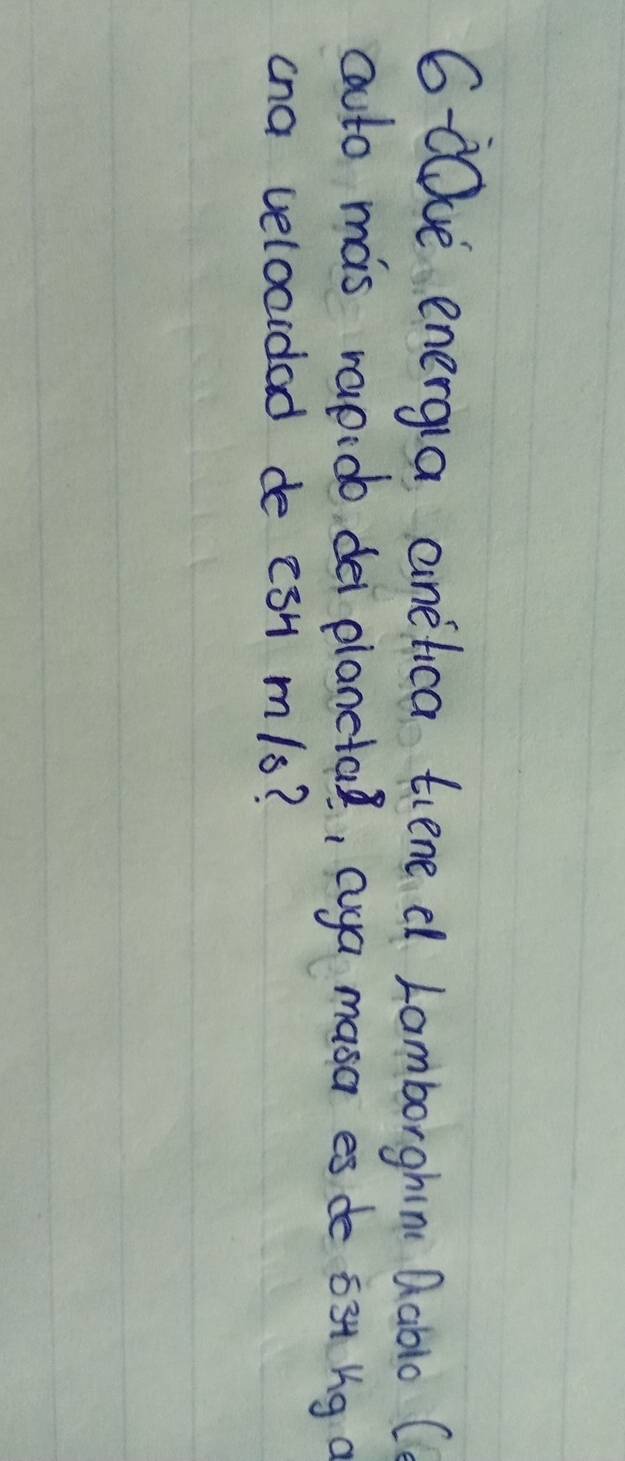 6-¿Qué energia cinética tiene el Lamborghini Diablo (
auto más rapido del planeta), cuya masa es de 534 Kg a
una velocidad de 234 m/s?